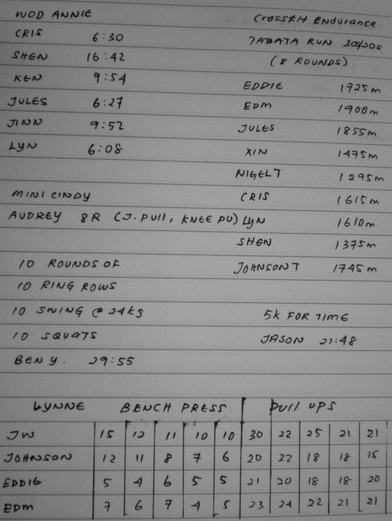 WOD ANNIE
CRIS 6:30
SHEN 16:42
KEN 9:54
JULES 6:27
JINN 9:52
LYN 6:08
MINI CINDY
AUDREY 8R (J. PULL, KNEE PU)
10 ROUNDS OF
10 RING ROWS
10 SWING @ 24KG
10 SQUATS
BEN Y. 29:55
CROSSFIT ENDURANCE
TABATA RUN 20/10s
(8 ROUNDS)
EDDIE 1725m
EDM 1900m
JULES 1855m
XIN 1475m
NIGEL T 1295m
CRIS 1615m
LYN 1610m
SHEN 1375m
JOHNSON T 1745m
5K FOR TIME
JASON 21:48
LYNNE BENCH PRESS PULL UPS
JW 15 12 11 10 10 30 22 25 21 21
JOHNSON 12 11 8 7 6 20 22 18 18 15
EDDIE 5 4 6 5 5 21 20 18 18 20
EDM 7 6 7 4 5 23 24 22 21 21